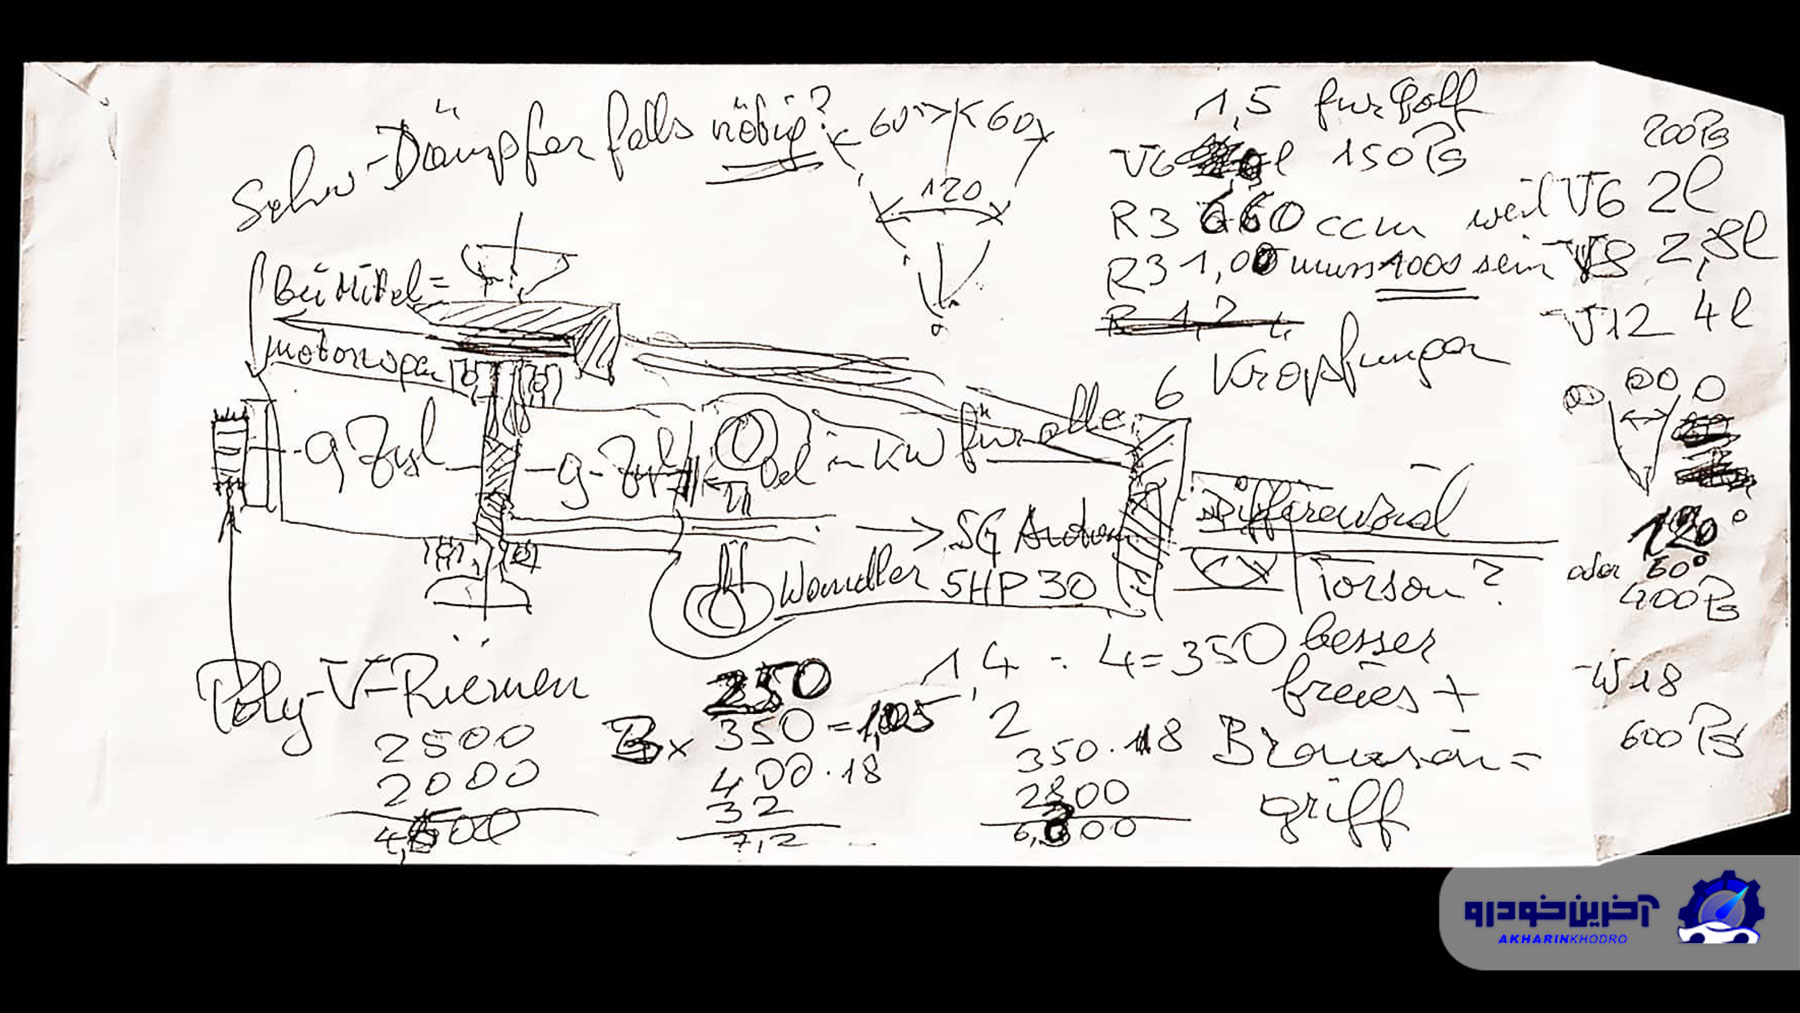 Schw-Dämpfer falls nötig?
60° 60
120
1,5 für Golf
V6 l 150 PS
R3 660 ccm weil V6 2l
200 PS
R3 1,00 muss 1000 sein V8 2,8l
V12 4l
6 Kröpfungen
Bei Mittel=
motorwagen
9 Zyl
9-Zyl
Öel in KW für alle
SG Autom
Wandler 5HP30
Differential
Torson?
besser
freies +
Browsan=
griff
120°
oder 60°
400 PS
W18
600 PS
Poly-V-Riemen
2500
2000
4,500
250
B x 350 = 1,05
400 · 18
32
7,2
1,4 : 4 = 350
2
350 · 18
2800
6,300
آخرین خودرو
AKHARINKHODRO